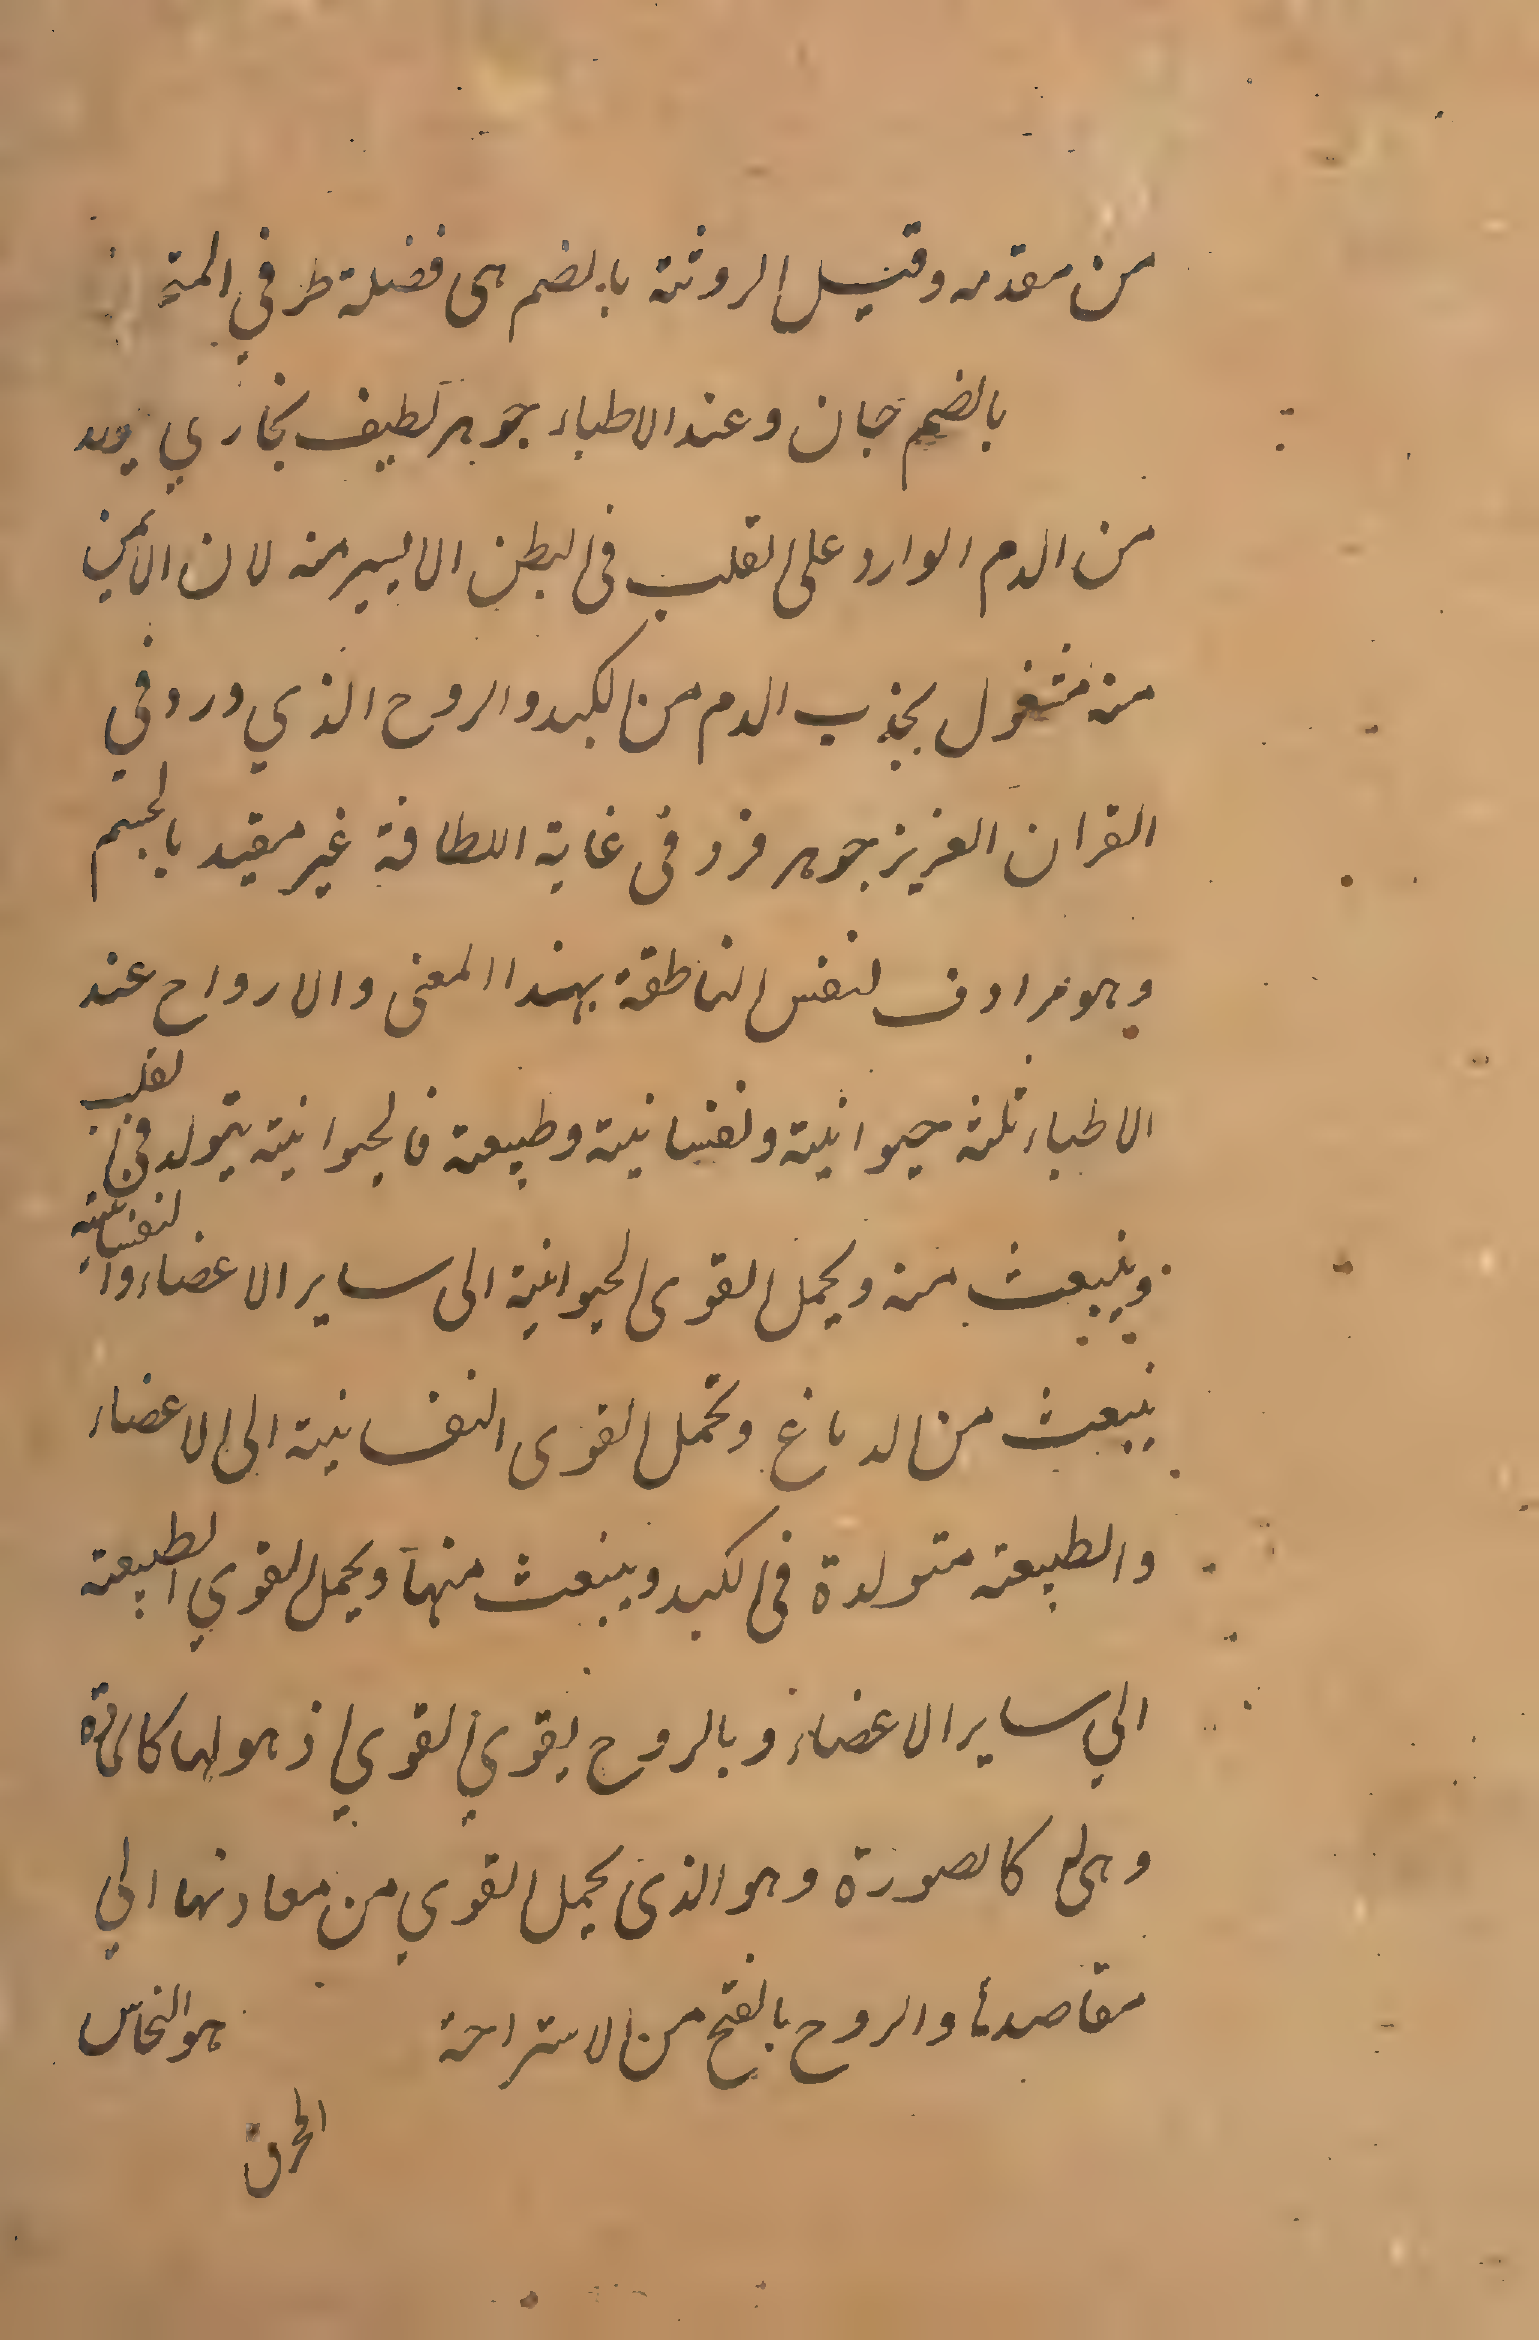 من مقدمه وقيل الروثة بالضم هى فضلة طرفي المتة
بالضم جان وعند الاطباء جوهر لطيف بخاري يولد
من الدم الوارد على القلب فى البطن الايسر منه لان الايمن
منه مشغول بجذب الدم من الكبد والروح الذي ورد في
القران العزيز جوهر فرد فى غاية اللطافة غير مقيد بالجسم
وهو مرادف النفس الناطقة بهذا المعنى والارواح عند
الاطباء ثلثة حيوانية ونفسانية وطبيعة فالحيوانية يتولد فى القلب
وينبعث منه ويحمل القوى الحيوانية الى ساير الاعضاء والنفسانية
ينبعث من الدماغ وتحمل القوى النفسانية الى الاعضاء
والطبيعة متولدة فى الكبد وينبعث منها ويحمل القوي الطبيعة
الي ساير الاعضاء وبالروح يقوي القوي اذ هو لها كالمادة
وهى كالصورة وهو الذى يحمل القوي من معادنها الي
مقاصدها والروح بالفتح من الاستراحة هو النحاس
المحرق